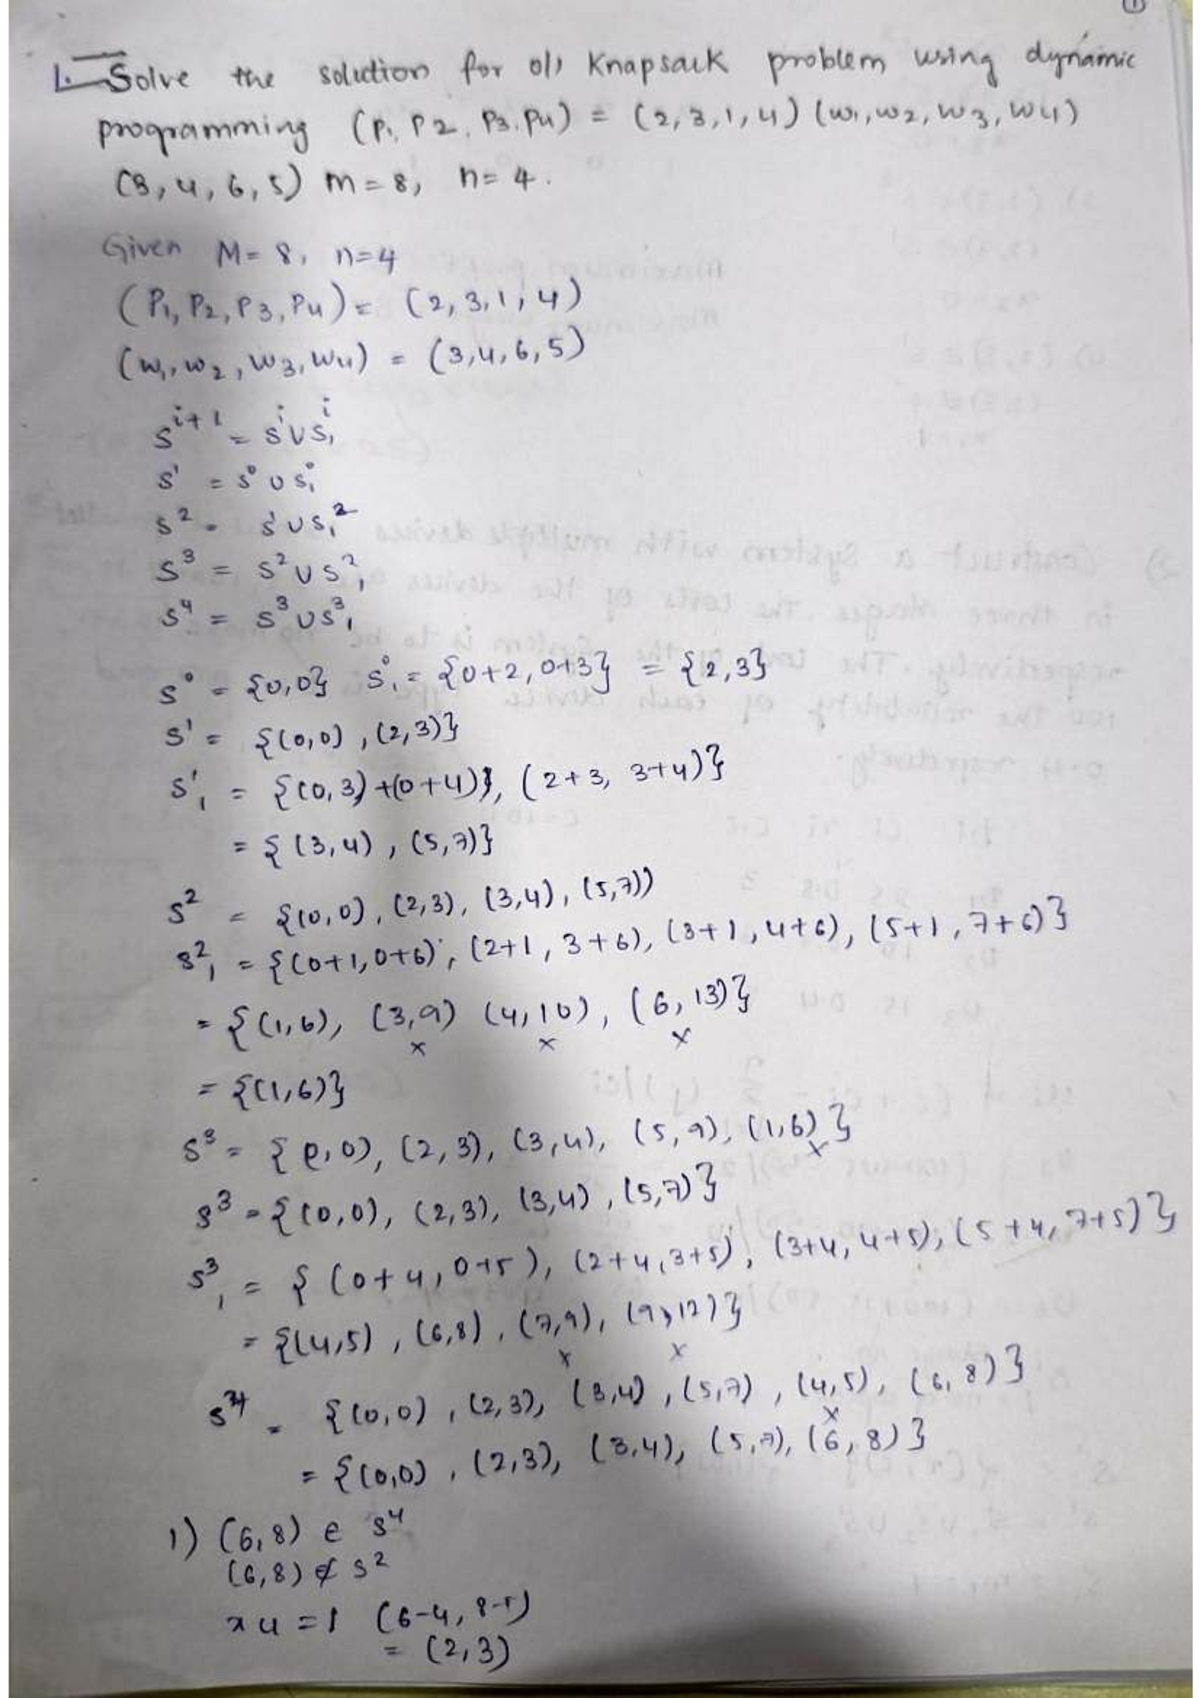 1
1. Solve the solution for 0/1 Knapsack problem using dynamic
programming (P1, P2, P3, P4) = (2,3,1,4) (w1, w2, w3, w4)
(3, 4, 6, 5) m = 8, n = 4.
Given M = 8, n=4
(P1, P2, P3, P4) = (2, 3, 1, 4)
(w1, w2, w3, w4) = (3,4,6,5)
S^{i+1} = S^i ∪ S^i_1
S^1 = S^0 ∪ S^0_1
S^2 = S^1 ∪ S_1^2
S^3 = S^2 ∪ S^2_1
S^4 = S^3 ∪ S^3_1
S^0 = {0,0} S^0_1 = {0+2, 0+3} = {2,3}
S^1 = {(0,0), (2,3)}
S^1_1 = {(0,3)+(0+4)}, (2+3, 3+4)}
= {(3,4), (5,7)}
S^2 = {(0,0), (2,3), (3,4), (5,7))
S^2_1 = {(0+1,0+6), (2+1, 3+6), (3+1, 4+6), (5+1, 7+6)}
= {(1,6), (3,9) (4,10), (6,13)}
x x x
= {(1,6)}
S^3 = {(0,0), (2,3), (3,4), (5,9), (1,6)}
x
S^3 = {(0,0), (2,3), (3,4), (5,7)}
S^3_1 = {(0+4, 0+5), (2+4,3+5), (3+4, 4+5), (5+4, 7+5)}
= {(4,5), (6,8), (7,9), (9,12)}
x x
S^4 = {(0,0), (2,3), (3,4), (5,7), (4,5), (6,8)}
x
= {(0,0), (2,3), (3,4), (5,7), (6,8)}
1) (6,8) ∈ S^4
(6,8) ∉ S^2
x4 = 1 (6-4, 8-5)
= (2,3)